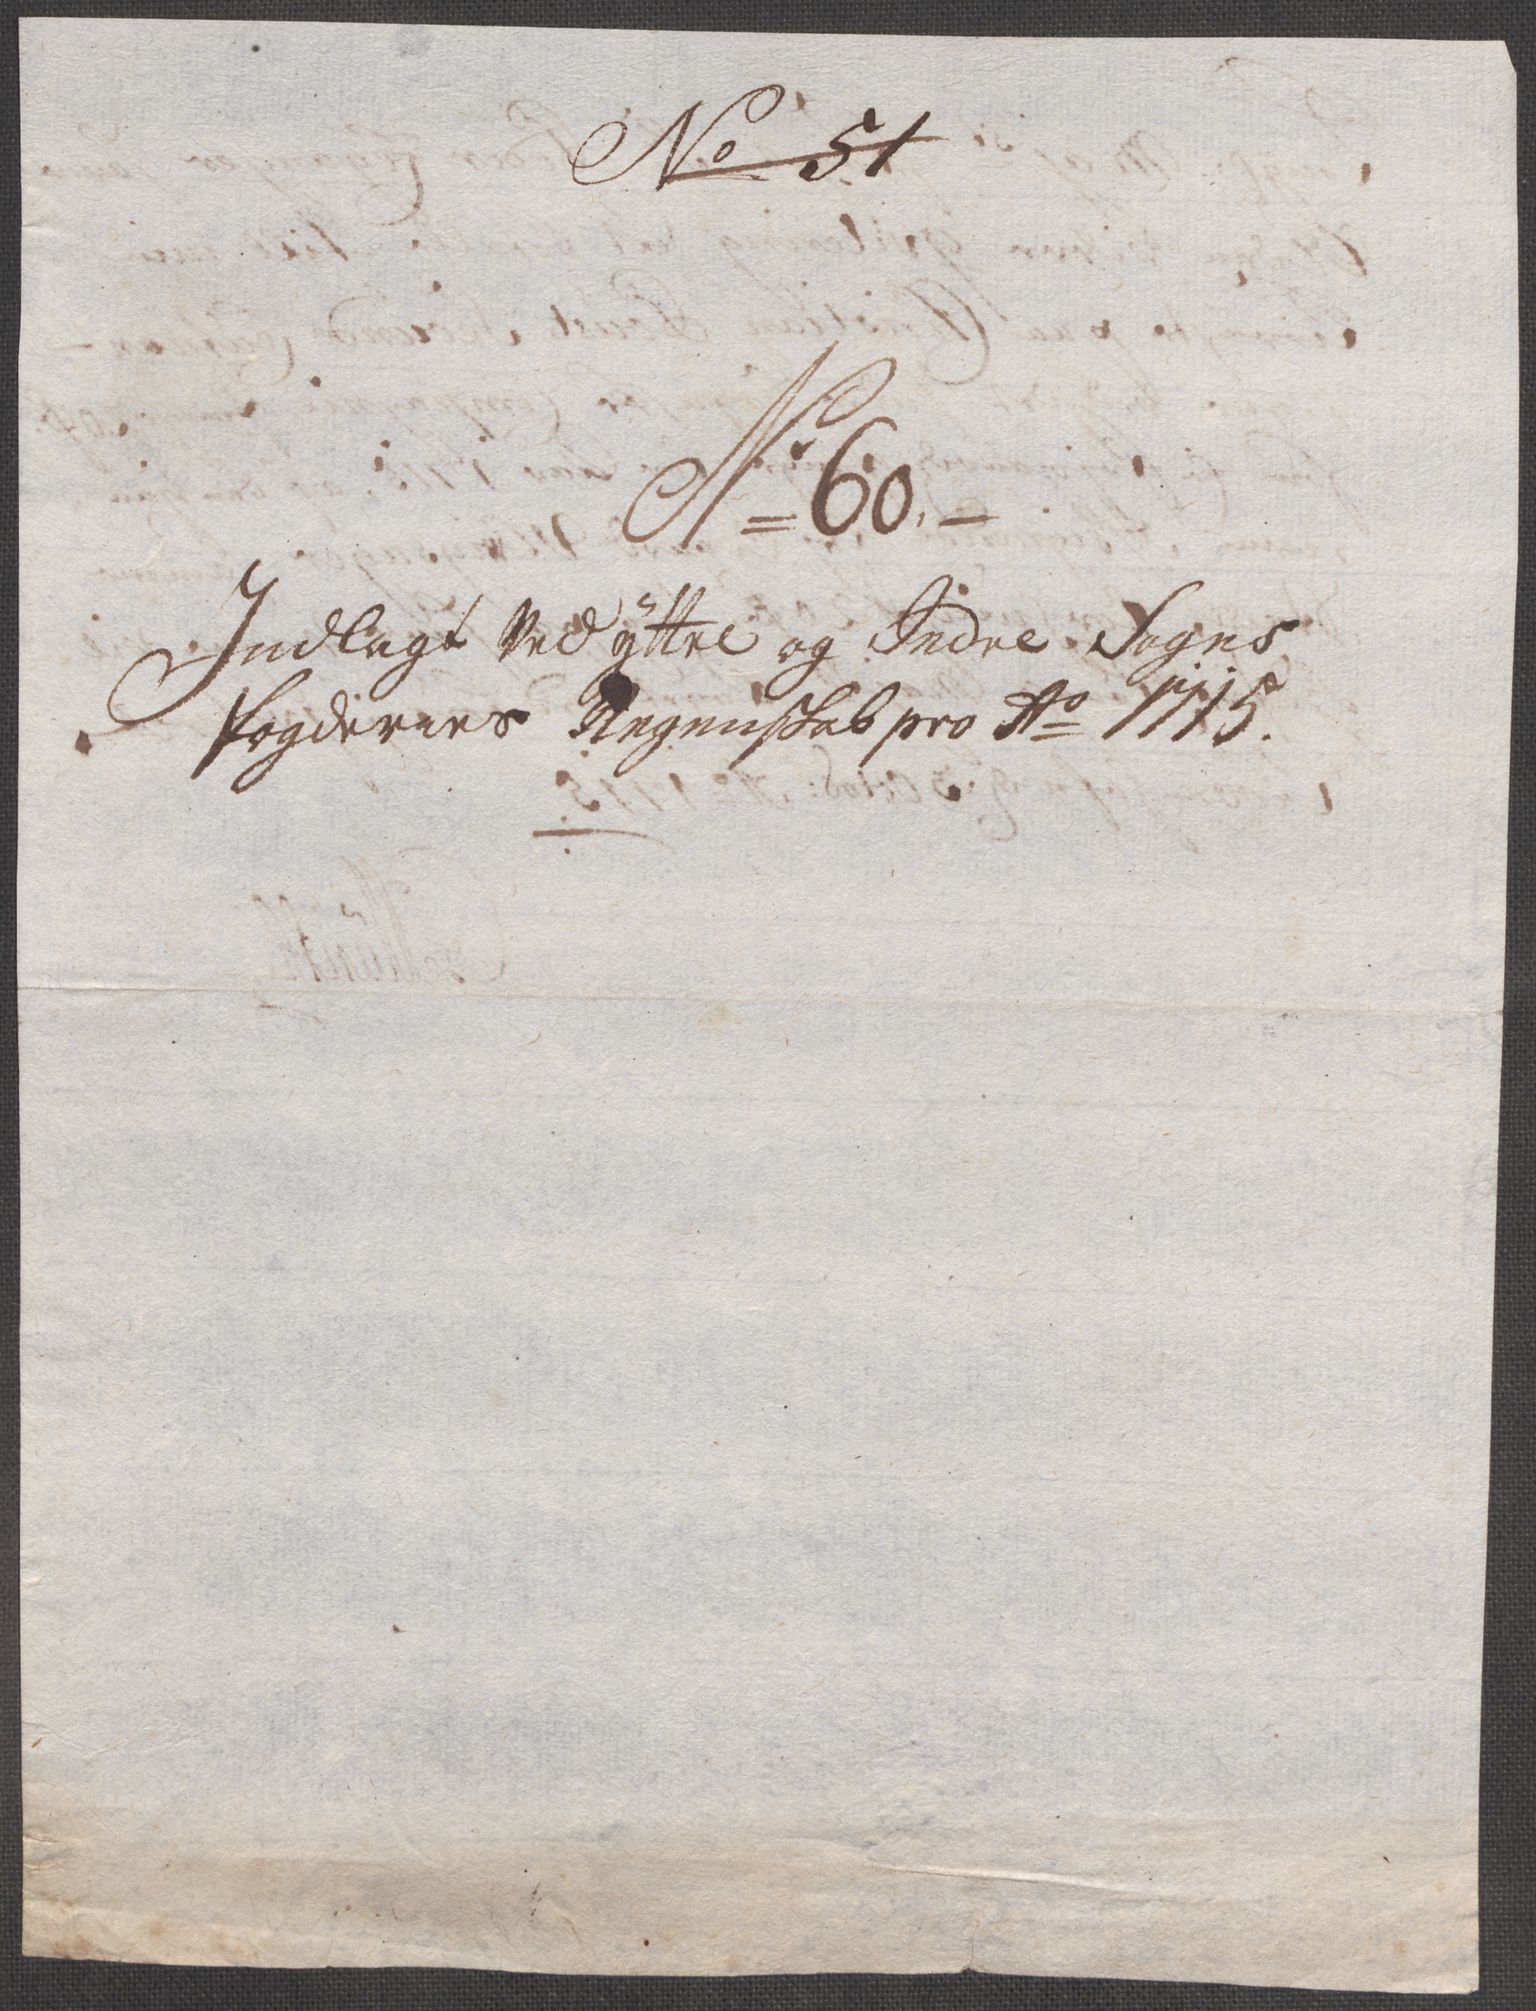 No 51
No 60.
Indlagt Ved ÿttre og Indre Sogns
fogderies Regenskab pro Ao 1715.